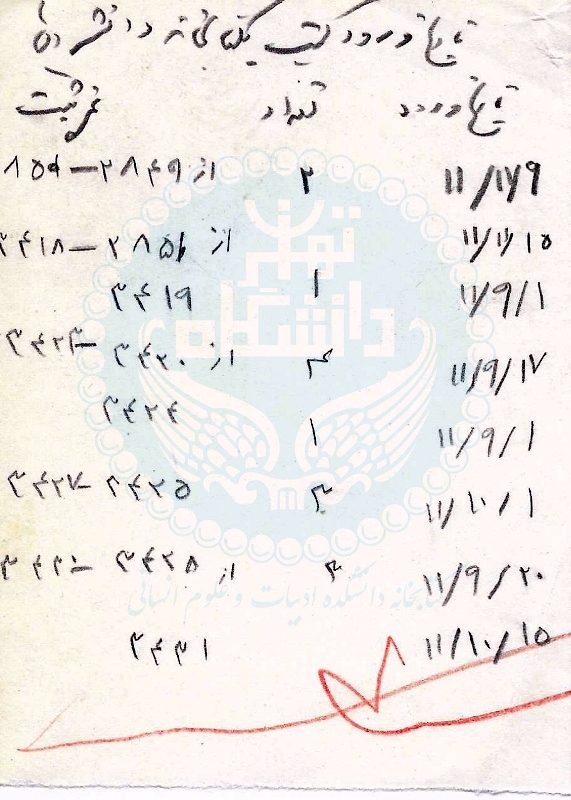 تاریخ ورود کتب بکتابخانه دانشکده
تاریخ ورود تعداد نمره ثبت
۱۱/۱/۲۹ ۲ از ۲۸۴۹ — ۸۵۰
۱۱/۱/۱۵ از ۲۸۵۱ — ۳۴۱۸
۱۱/۹/۱ ۱ ۳۴۱۹
۱۱/۹/۱۷ ۴ از ۳۴۲۰ — ۳۴۲۳
۱۱/۹/۱ ۱ ۳۴۲۴
۱۱/۱۰/۱ ۳ ۳۴۲۵ — ۳۴۲۷
۱۱/۹/۲۰ ۳ از ۳۴۲۸ — ۳۴۳۰
۱۱/۱۰/۱۵ ۳۴۳۱
دانشگاه تهران
کتابخانه دانشکده ادبیات و علوم انسانی